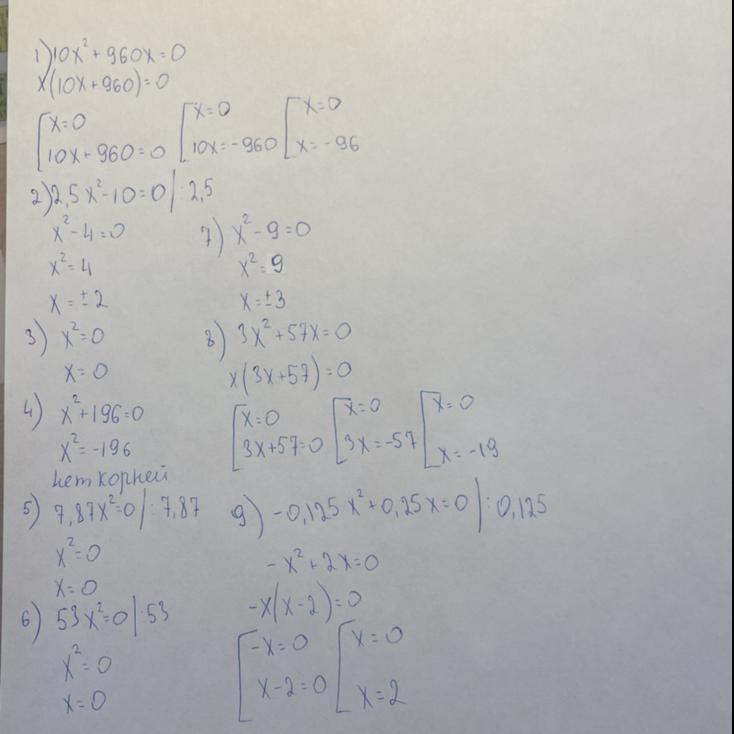 1) 10x² + 960x = 0
x(10x + 960) = 0
[x = 0 [x = 0 [x = 0
10x + 960 = 0 10x = -960 x = -96
2) 2,5x² - 10 = 0 | : 2,5
x² - 4 = 0
x² = 4
x = ±2
3) x² = 0
x = 0
4) x² + 196 = 0
x² = -196
нет корней
5) 7,87x² = 0 | : 7,87
x² = 0
x = 0
6) 53x² = 0 | : 53
x² = 0
x = 0
7) x² - 9 = 0
x² = 9
x = ±3
8) 3x² + 57x = 0
x(3x + 57) = 0
[x = 0 [x = 0 [x = 0
3x + 57 = 0 3x = -57 x = -19
9) -0,125x² + 0,25x = 0 | : 0,125
-x² + 2x = 0
-x(x - 2) = 0
[-x = 0 [x = 0
x - 2 = 0 x = 2